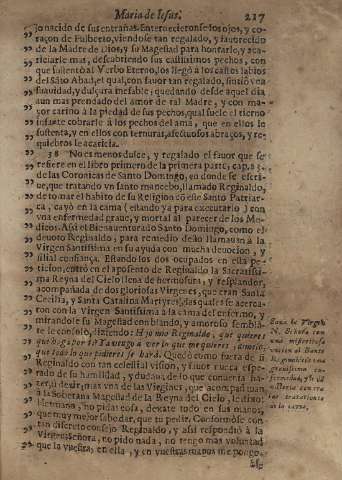 Maria de Iesus. 217
jo nacido de sus entrañas. Enternecieronse los ojos, y co-
raçon de Fulberto, viendose tan regalado, y fauorecido
de la Madre de Dios, y su Magestad para honrarlo, y aca-
riciarle mas, descubriendo sus castissimos pechos, con
que sustentò al Verbo Eterno, los llegó a los castos labios
del Sãto Abad, el qual, con fauor tan regalado, sintiò vna
suauidad, y dulçura inefable; quedando desde aquel dia
aun mas prendado del amor de tal Madre, y con ma-
yor cariño à la piedad de sus pechos, qual suele el tierno
infante cobrarle à los pechos del ama, que en ellos le
sustenta, y en ellos con ternuras, afectuosos abraços, y re-
quiebros le acaricia.
38 No es menos dulce, y regalado el fauor que se
refiere en el libro primero de la primera parte, cap.
de las Coronicas de Santo Domingo, en donde se escri-
ue, que tratando vn santo mancebo, llamado Reginaldo,
de tomar el habito de su Religion cõ este Santo Patriar-
ca, cayò en la cama (estando ya para executarlo) con
vna enfermedad graue, y mortal al parecer de los Me-
dicos. Assi el Bienauenturado Santo Domingo, como el
deuoto Reginaldo, para remedio de llamauan à la
Virgen Santissima en su ayuda con mucha deuocion, y
filial confiança. Estando los dos ocupados en ella pe-
ticion, entrò en el aposento de Reginaldo la Sacratissi-
ma Reyna del Cielo llena de hermosura, y resplandor,
acompañada de dos gloriosas Virgenes, que eran Santa
Cecilia, y Santa Catalina Martyres, las quales se acerca-
ron con la Virgen Santissima à la cama del enfermo, y
mirandole su Magestad con blando, y amoroso sembla-
te le consolò, diziendo: Hijo mio Reginaldo, que quieres
que haga por ti? Ya vengo a ver lo que me quieres,
que todo lo que pidieres se hará. Quedò como fuera de si
Reginaldo con tan celestial vision, y fauor nunca espe-
rado de su humildad, y dudando de lo que contenta ha-
zer, u dezir, mas vna de las Virgines, que acompañauan
à la Soberana Magestad de la Reyna del Cielo, le dixo:
Hermano, no pidas cosa, dexate todo en sus manos,
que muy mejor sabe dar, que tu pedir. Conformòse con
tan discreto consejo Reginaldo, y assi respondiò à la
Virgen: Señora, no pido nada, no tengo mas voluntad
que la vuestra, en ella, y en vuestras manos me pongo.
Sana la Virgē
N. Señora con
una
uision al Santo
Reginaldo
grauissima en-
fermedad,
con
tar
la carne.